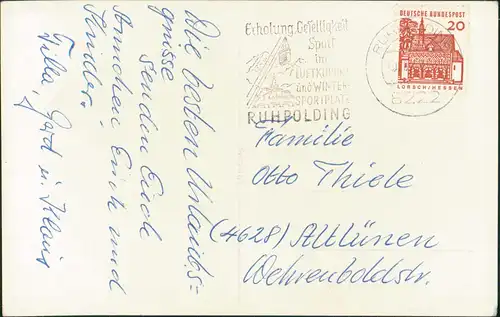 Die besten Urlaubs-
grüsse
senden Euch
Ännchen Erich und
Kinder.
Gerd u. Klaus
Erholung, Geselligkeit
Sport
im
LUFTKURORT
und WINTER-
SPORTPLATZ
RUHPOLDING
8222
DEUTSCHE BUNDESPOST
20
LORSCH/HESSEN
Familie
Otto Thiele
(4628) Altlünen
Wehrenboldstr.